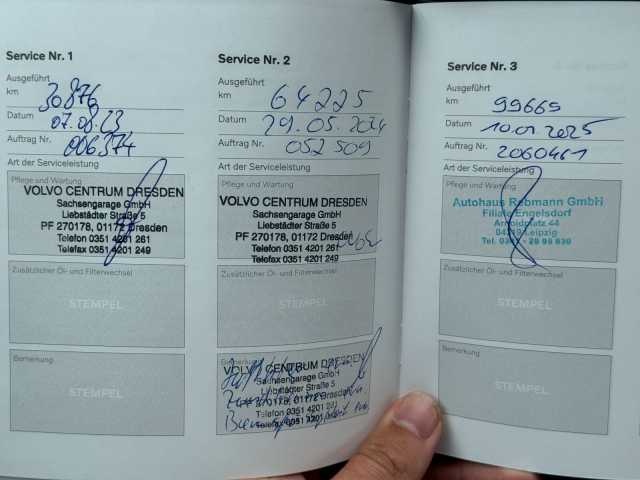 Service Nr. 1
Ausgeführt
km 30876
Datum 07.08.23
Auftrag Nr. 006374
Art der Serviceleistung
Pflege und Wartung
VOLVO CENTRUM DRESDEN
Sachsengarage GmbH
Liebstädter Straße 5
PF 270178, 01172 Dresden
Telefon 0351 4201 261
Telefax 0351 4201 249
Zusätzlicher Öl- und Filterwechsel
STEMPEL
Bemerkung
STEMPEL
Service Nr. 2
Ausgeführt
km 64225
Datum 29.05.2024
Auftrag Nr. 052509
Art der Serviceleistung
Pflege und Wartung
VOLVO CENTRUM DRESDEN
Sachsengarage GmbH
Liebstädter Straße 5
PF 270178, 01172 Dresden
Telefon 0351 4201 261
Telefax 0351 4201 249
Zusätzlicher Öl- und Filterwechsel
STEMPEL
Bemerkung
VOLVO CENTRUM DRESDEN
Sachsengarage GmbH
Liebstädter Straße 5
270178, 01172 Dresden
Telefon 0351 4201
Telefax 0351 4201
Service Nr. 3
Ausgeführt
km 99665
Datum 10.01.2025
Auftrag Nr. 2060461
Art der Serviceleistung
Pflege und Wartung
Autohaus Rebmann GmbH
Filiale Engelsdorf
Arnoldplatz 44
04319 Leipzig
Tel. 0341 - 25 99 830
Zusätzlicher Öl- und Filterwechsel
STEMPEL
Bemerkung
STEMPEL